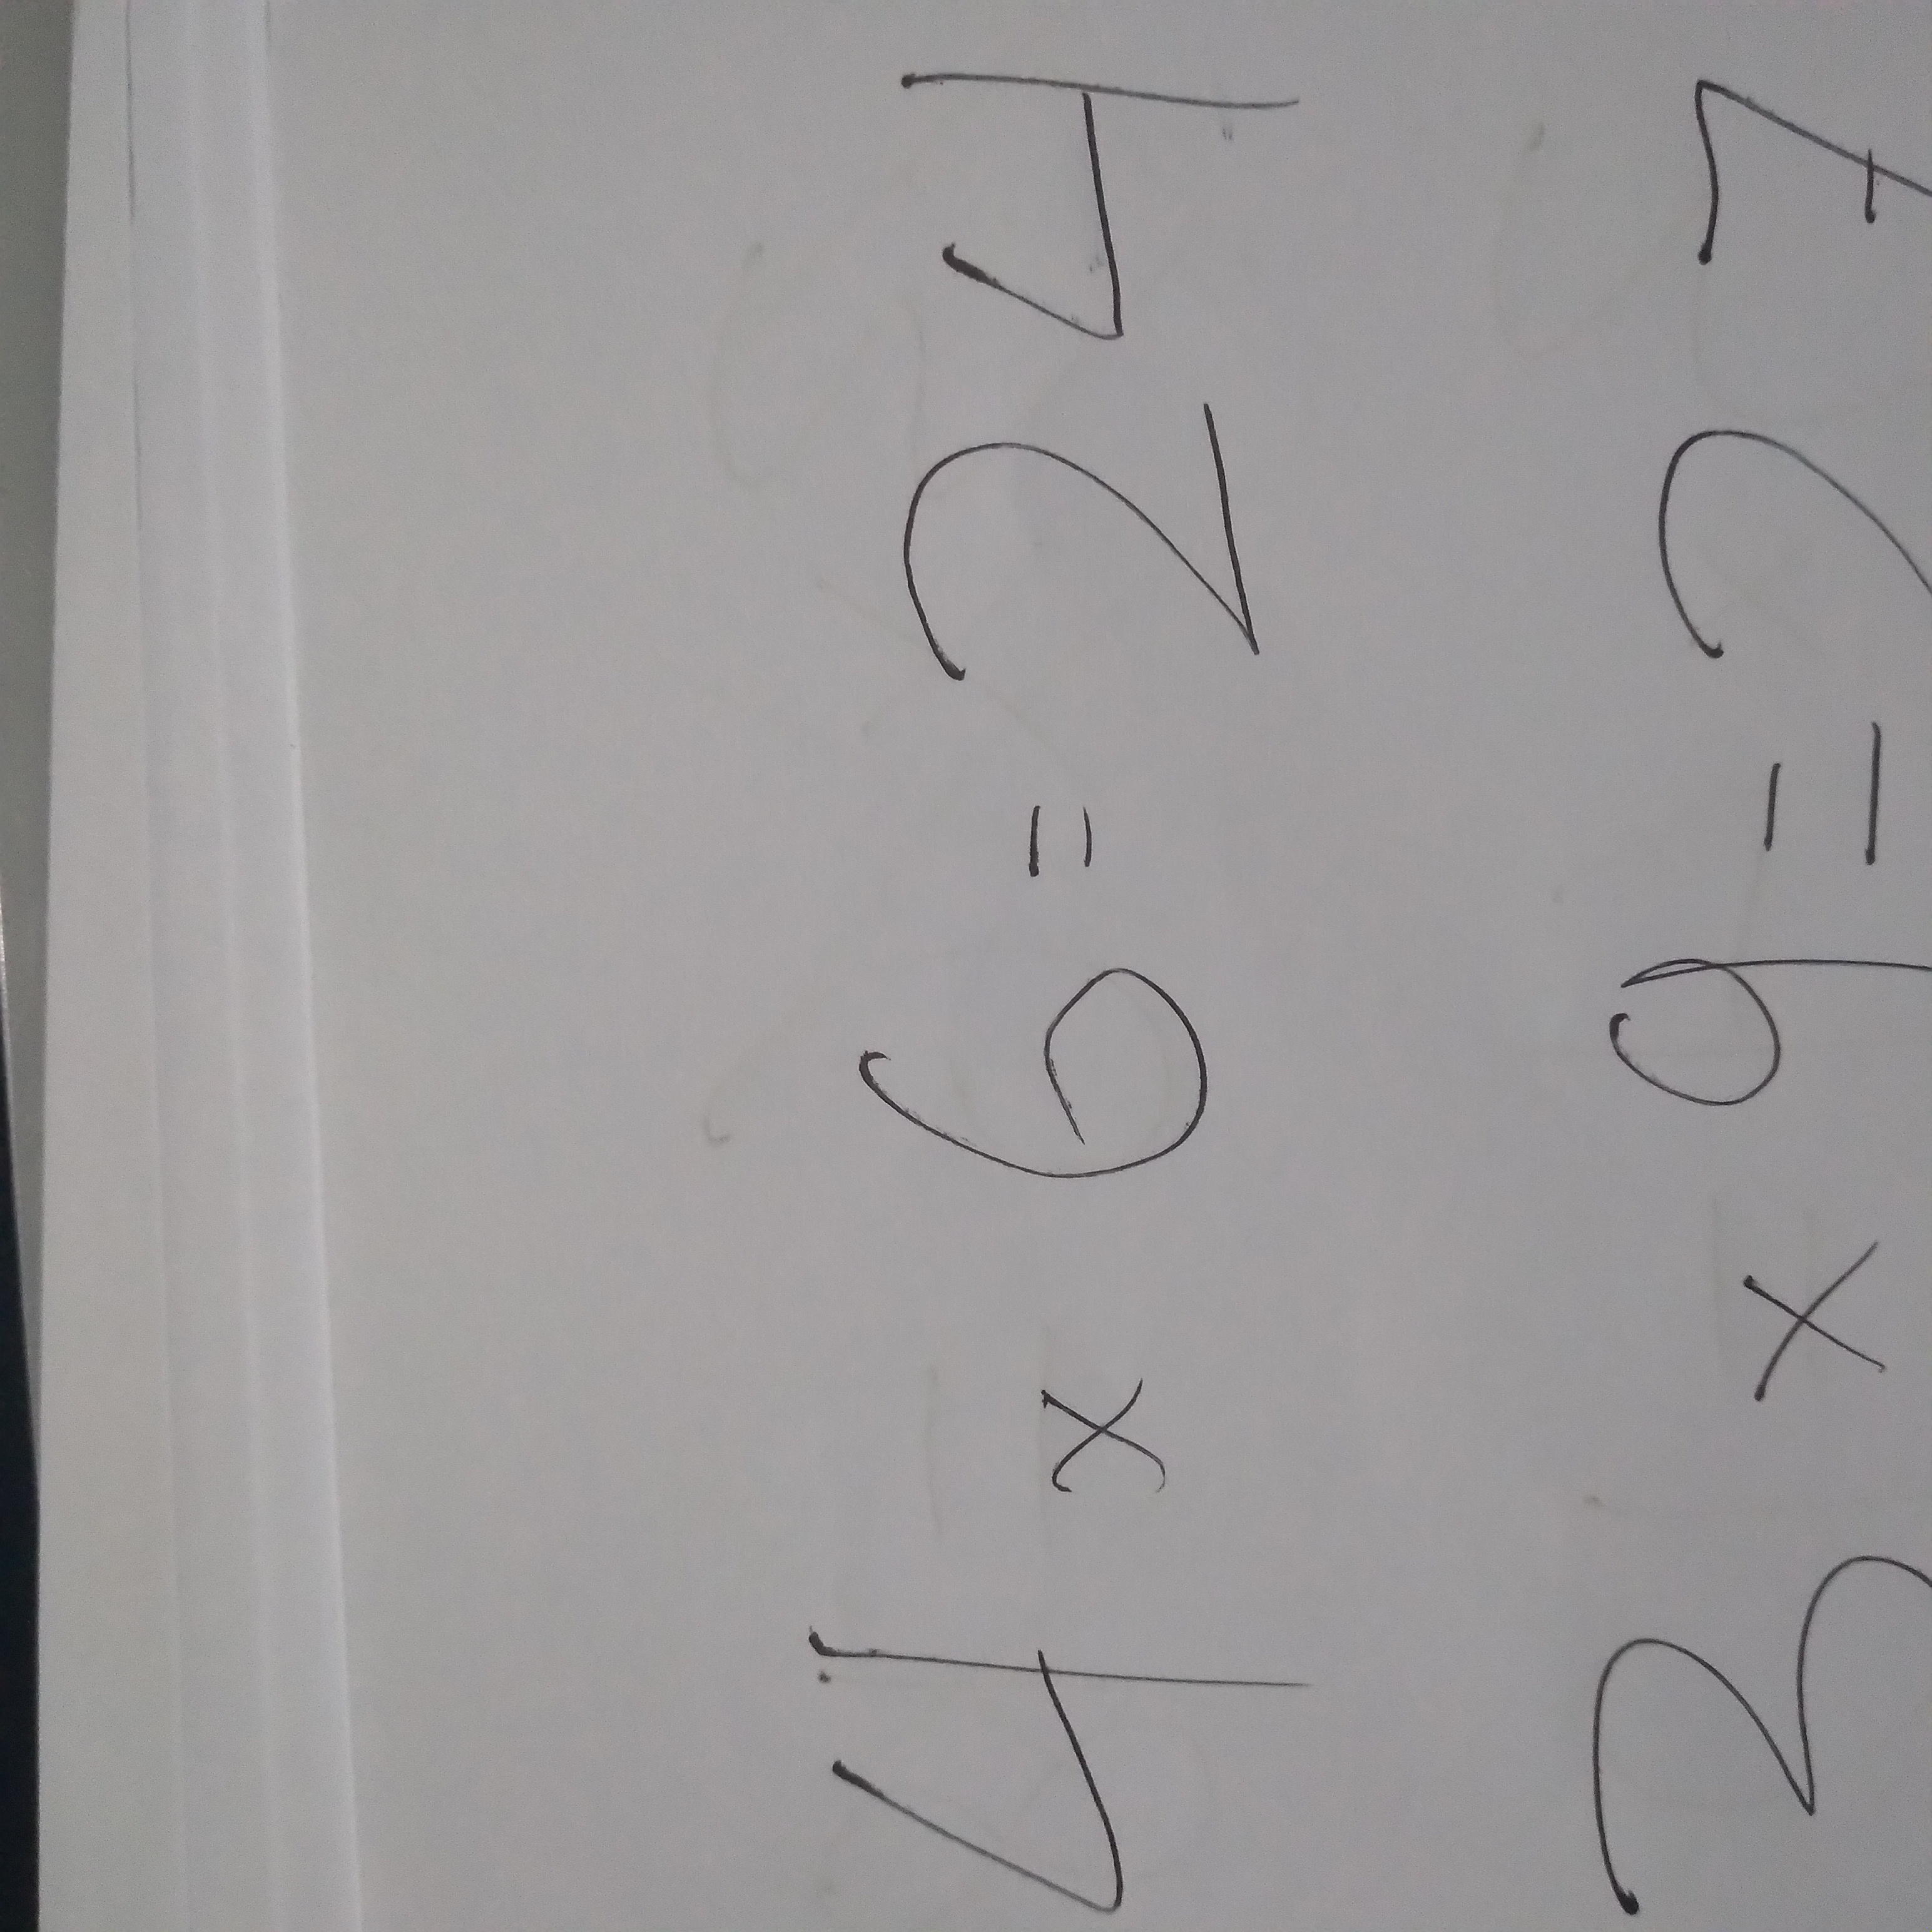 4 x 6 = 24
3 x 9 = 27